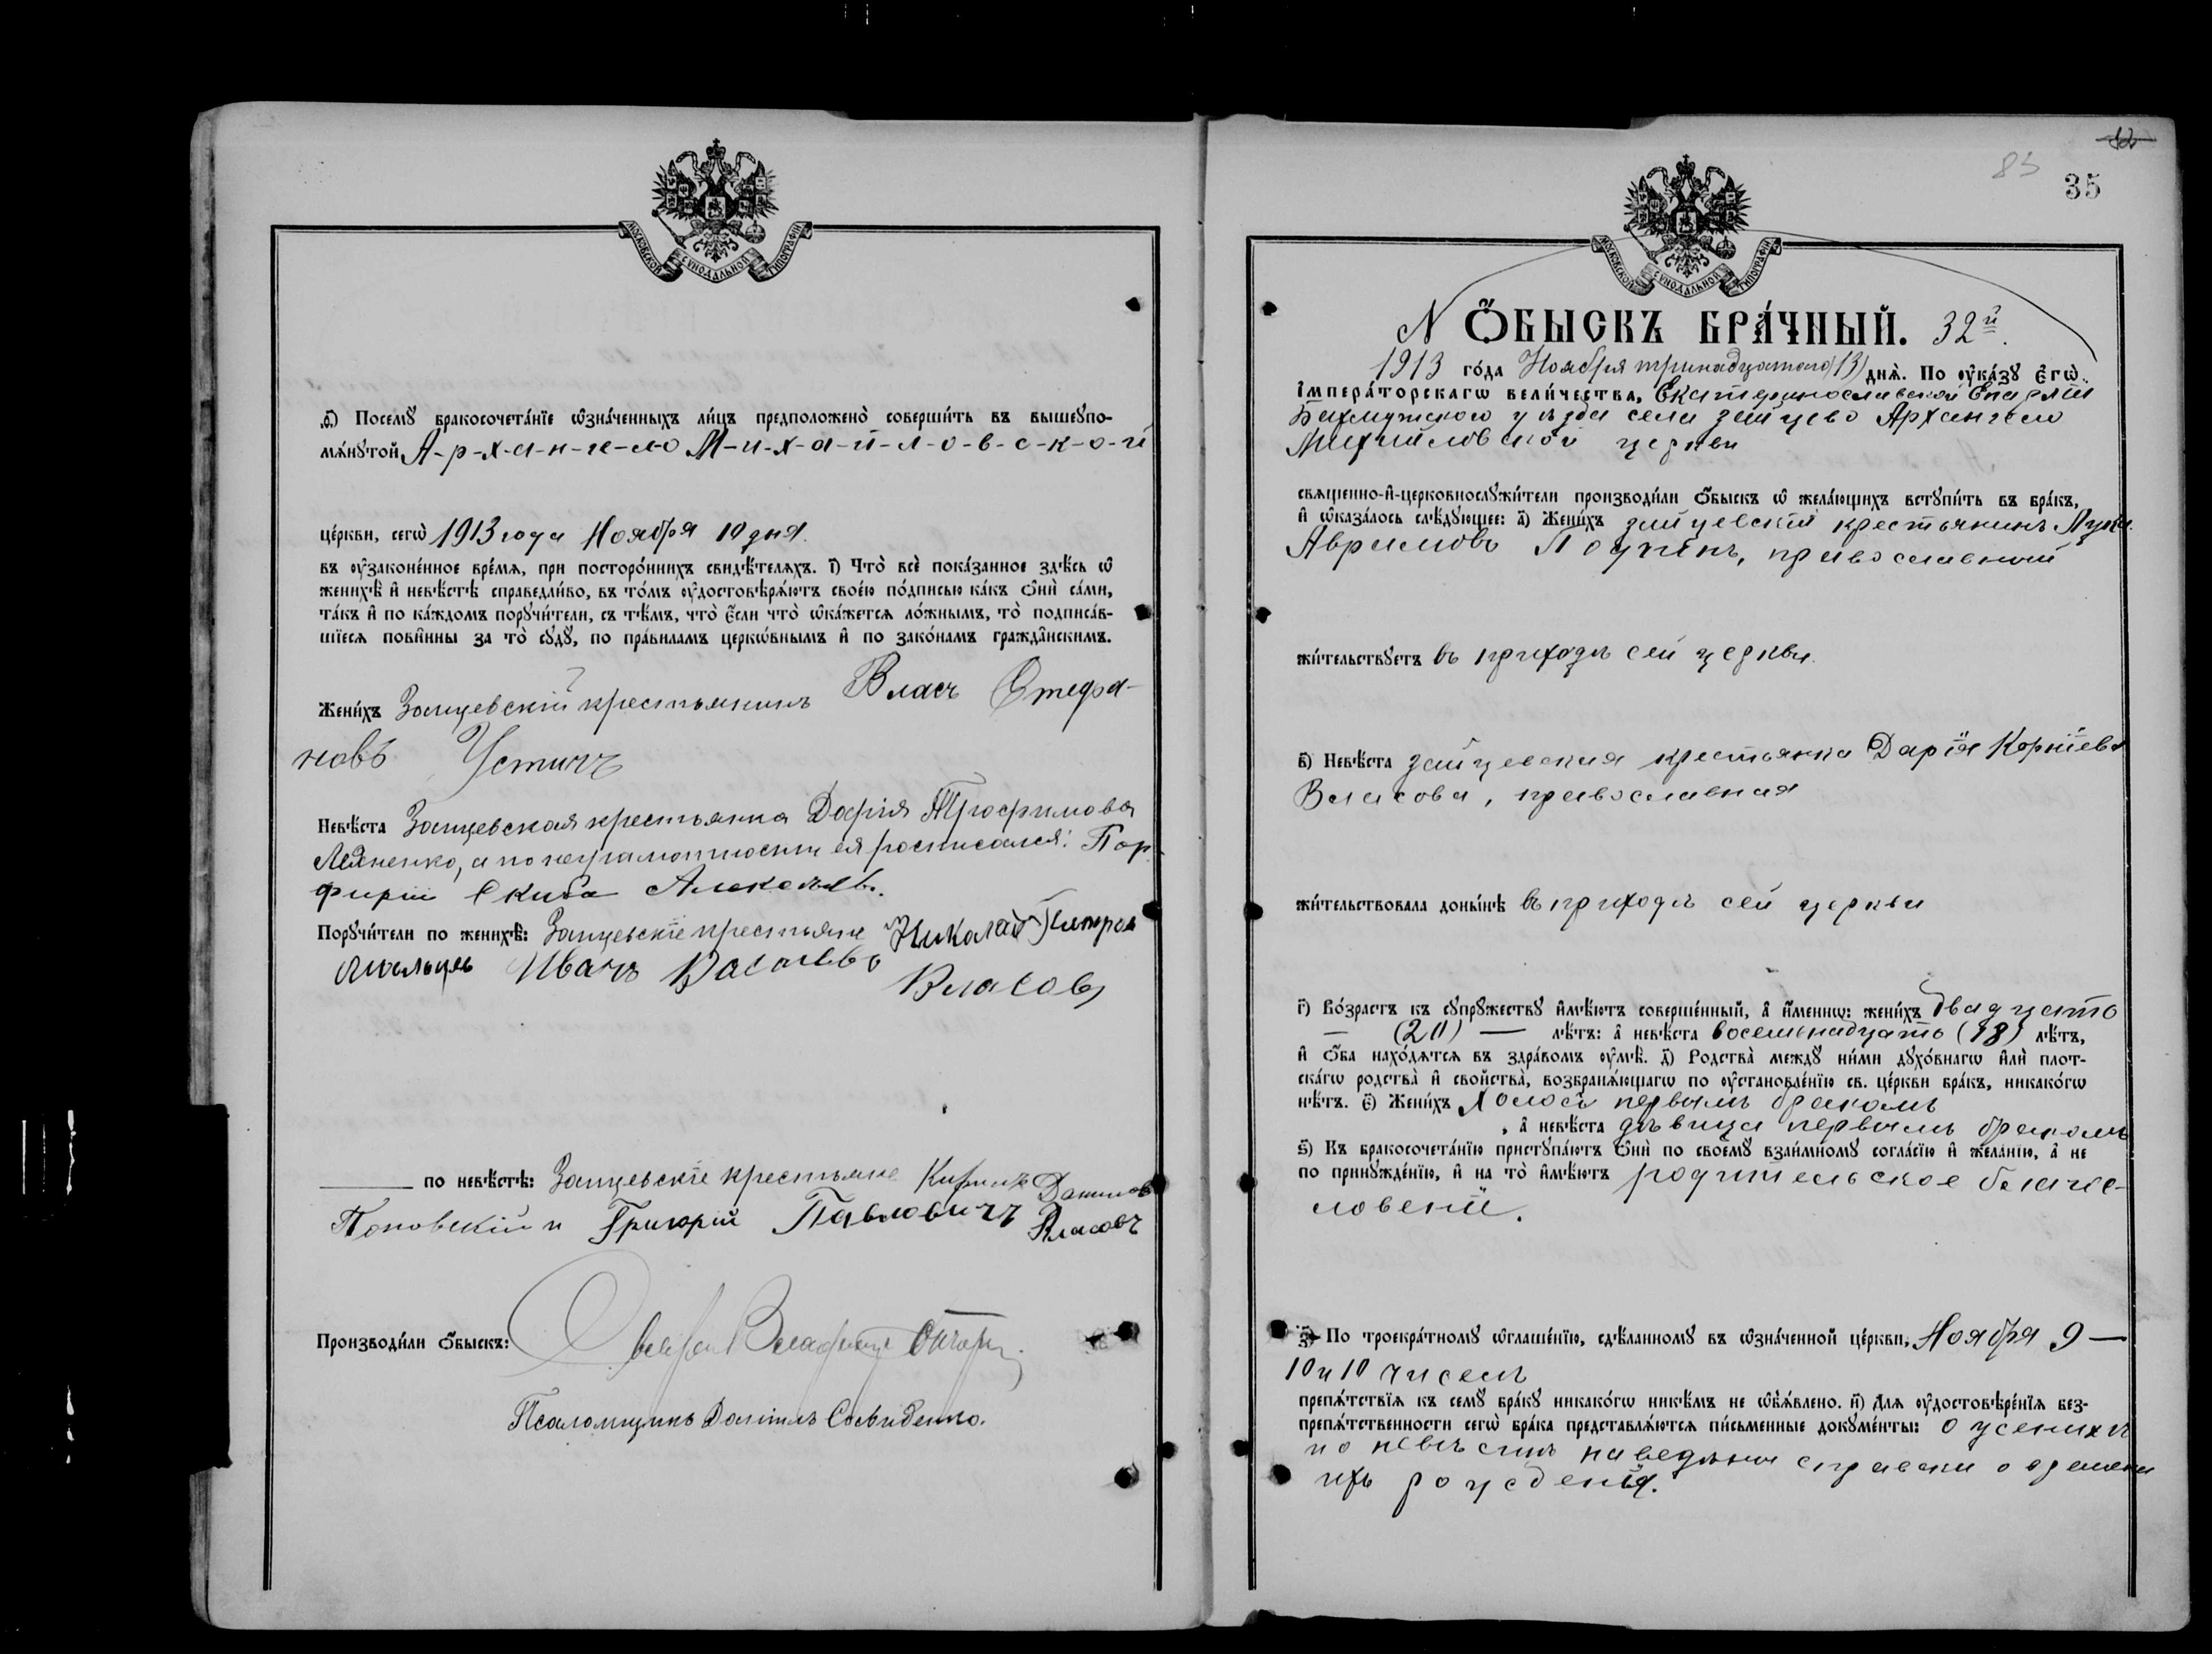 МОСКОВСКОЙ СѴНОДАЛЬНОЙ ТИПОГРАФІИ
ѳ҃) Посемꙋ бракосочета́нїе ѡ҆зна́ченныхъ ли́цъ предположено̀ соверши́ть въ вышеꙋпо-
мѧ́нꙋтой А-р-х-а-н-г-е-л-о М-и-х-а-й-л-о-в-с-к-о-й
це́ркви, сегѡ̀ 1913 года Ноября 10 дня.
въ ᲂу҆законе́нное вре́мѧ, при посторо́ннихъ свидѣ́телѧхъ. і҃) Что̀ всѐ пока́занное здѣ́сь ѡ҆
женихѣ̀ и҆ невѣ́стѣ справедли́во, въ то́мъ ᲂу҆достовѣрѧ́ютъ свое́ю по́дписью ка́къ ѻ҆нѝ са́ми,
та́къ и҆ по ка́ждомъ порꙋчи́тели, съ тѣ́мъ, что̀ є҆́сли что̀ ѡ҆ка́жетсѧ ло́жнымъ, то̀ подписа́в-
шїесѧ пови́нны за то̀ сꙋдꙋ̀, по пра́виламъ церко́внымъ и҆ по зако́намъ гражда̑нскимъ.
Жени́хъ Зайцевскій крестьянинъ Власъ Стефа-
новъ Устичъ
Невѣ́ста Зайцевская крестьянка Дарія Трофимова
а по неграмотности ея росписался: Пор-
фирій Скиба
Порꙋчи́тели по женихѣ̀: Зайцевскіе крестьяне Николай
Иванъ
Власовъ
по невѣ́стѣ: Зайцевскіе крестьяне Кирилъ Даниловъ
Поповскій и Григорій Павловичъ Власовъ
Производи́ли ѻ҆́быскъ:
Псаломщикъ Даніилъ
83
35
МОСКОВСКОЙ СѴНОДАЛЬНОЙ ТИПОГРАФІИ
N ѺБЫСКЪ БРА́ЧНЫЙ. 32й.
1913 го́да Ноября тринадцатаго (13) днѧ̀. По ᲂу҆ка́зꙋ Є҆гѡ̀
І҆мпера́торскагѡ вели́чества, Екатеринославской Епархіи
Бахмутскаго уѣзда села Зайцево Архангело
Михайловской церкви
свѧщенно-и҆-церковнослꙋжи́тели производи́ли ѻ҆́быскъ ѡ҆ жела́ющихъ встꙋпи́ть въ бра́къ,
и҆ ѡ҆каза́лось слѣ́дꙋющее: а҃) Жени́хъ зайцевскій крестьянинъ Лука
Аврамовъ православный
жи́тельствꙋетъ въ приходѣ сей церкви.
в҃) Невѣ́ста зайцевская крестьянка Дарія Корніева
Власова, православная
жи́тельствовала доны́нѣ въ приходѣ сей церкви
г҃) Во́зрастъ къ сꙋпрꙋ́жествꙋ и҆мѣ́ютъ соверше́нный, а҆ и҆́менно: жени́хъ двадцать
— (20) — лѣ́тъ: а҆ невѣ́ста восемнадцать (18) лѣ́тъ,
и҆ ѻ҆́ба нахо́дѧтсѧ въ здра́вомъ ᲂу҆мѣ̀. д҃) Родства̀ междꙋ̀ ни́ми дꙋхо́внагѡ и҆лѝ плот-
ска́гѡ родства̀ и҆ сво́йства̀, возбранѧ́ющагѡ по ᲂу҆становле́нїю св. це́ркви бра́къ, никако́гѡ
нѣ́тъ. є҃) Жени́хъ холостъ первымъ бракомъ
, а҆ невѣ́ста дѣвица первымъ бракомъ
ѕ҃) Къ бракосочета́нїю пристꙋпа́ютъ ѻ҆нѝ по своемꙋ̀ взаи́мномꙋ согла́сїю и҆ жела́нїю, а҆ не
по принꙋжде́нїю, и҆ на то̀ и҆мѣ́ютъ родительское благос-
ловеніе.
з҃) По троекра́тномꙋ ѡ҆глаше́нїю, сдѣ́ланномꙋ въ ѡ҆зна́ченной це́ркви, Ноября 9 —
10 и 10 чиселъ
препѧ́тствїѧ къ семꙋ̀ бра́кꙋ никако́гѡ никѣ́мъ не ѡ҆б̾ѧ́влено. и҃) Длѧ ᲂу҆достовѣре́нїѧ без-
препѧ́тственности сегѡ̀ бра́ка представлѧ́ютсѧ пи́сьменные докꙋме́нты: о женихѣ
и о невѣстѣ наведены справки о времени
ихъ рожденія.